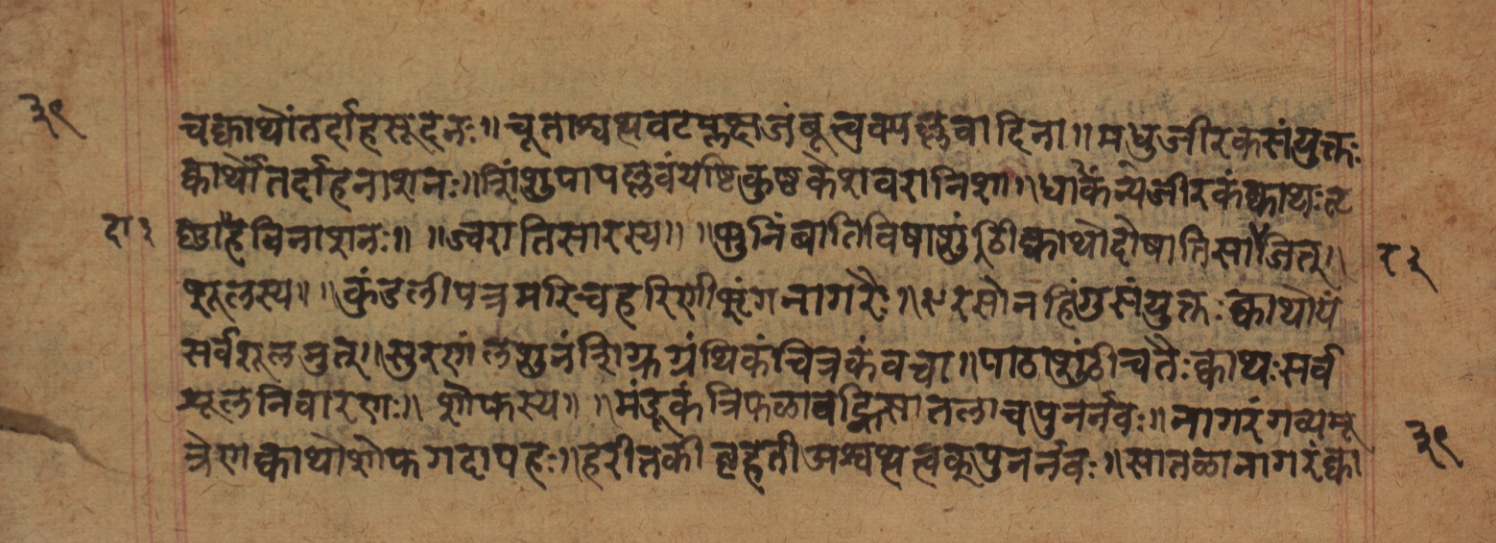 ३९
चक्वाथोंतर्दाहसूदनः॥ चूताश्वत्थवटप्लक्षजंबूत्वक्पल्लवादिना॥ मधुजीरकसंयुक्तः
क्वाथोंतर्दाहनाशनः॥ शिंशुपापल्लवंयष्टिकुष्टकेशवरानिशा॥ धाकंन्यजीरकंक्वाथःत
दा३ ह्याहंविनाशनः॥ ॥ज्वरातिसारस्य॥ ॥भुनिंबातिविषाशुंठीक्वाथोदोषातिसाजित्॥ र३
शूलस्य॥ ॥कुंडलीपत्रमरिचहरिणीभृंगनागरैः॥ रसोनहिंगुसंयुक्तः क्वाथोयं
सर्वशूलनुत्॥ सुरणंलशुनंशिग्रुग्रंथिकंचित्रकंवचा॥ पाठाशुंठीचतैःक्वाथःसर्व
शूलनिवारणः॥ शोफस्य॥ ॥मंडूकंत्रिफळावह्निसातलाचपुनर्नवः॥ नागरंगव्यमू
त्रेणक्वाथोशोफगदापहः॥ हरीतकीबृहतीअश्वत्थत्वक्पुनर्नवः॥ सातळानागरंक्वा
३९